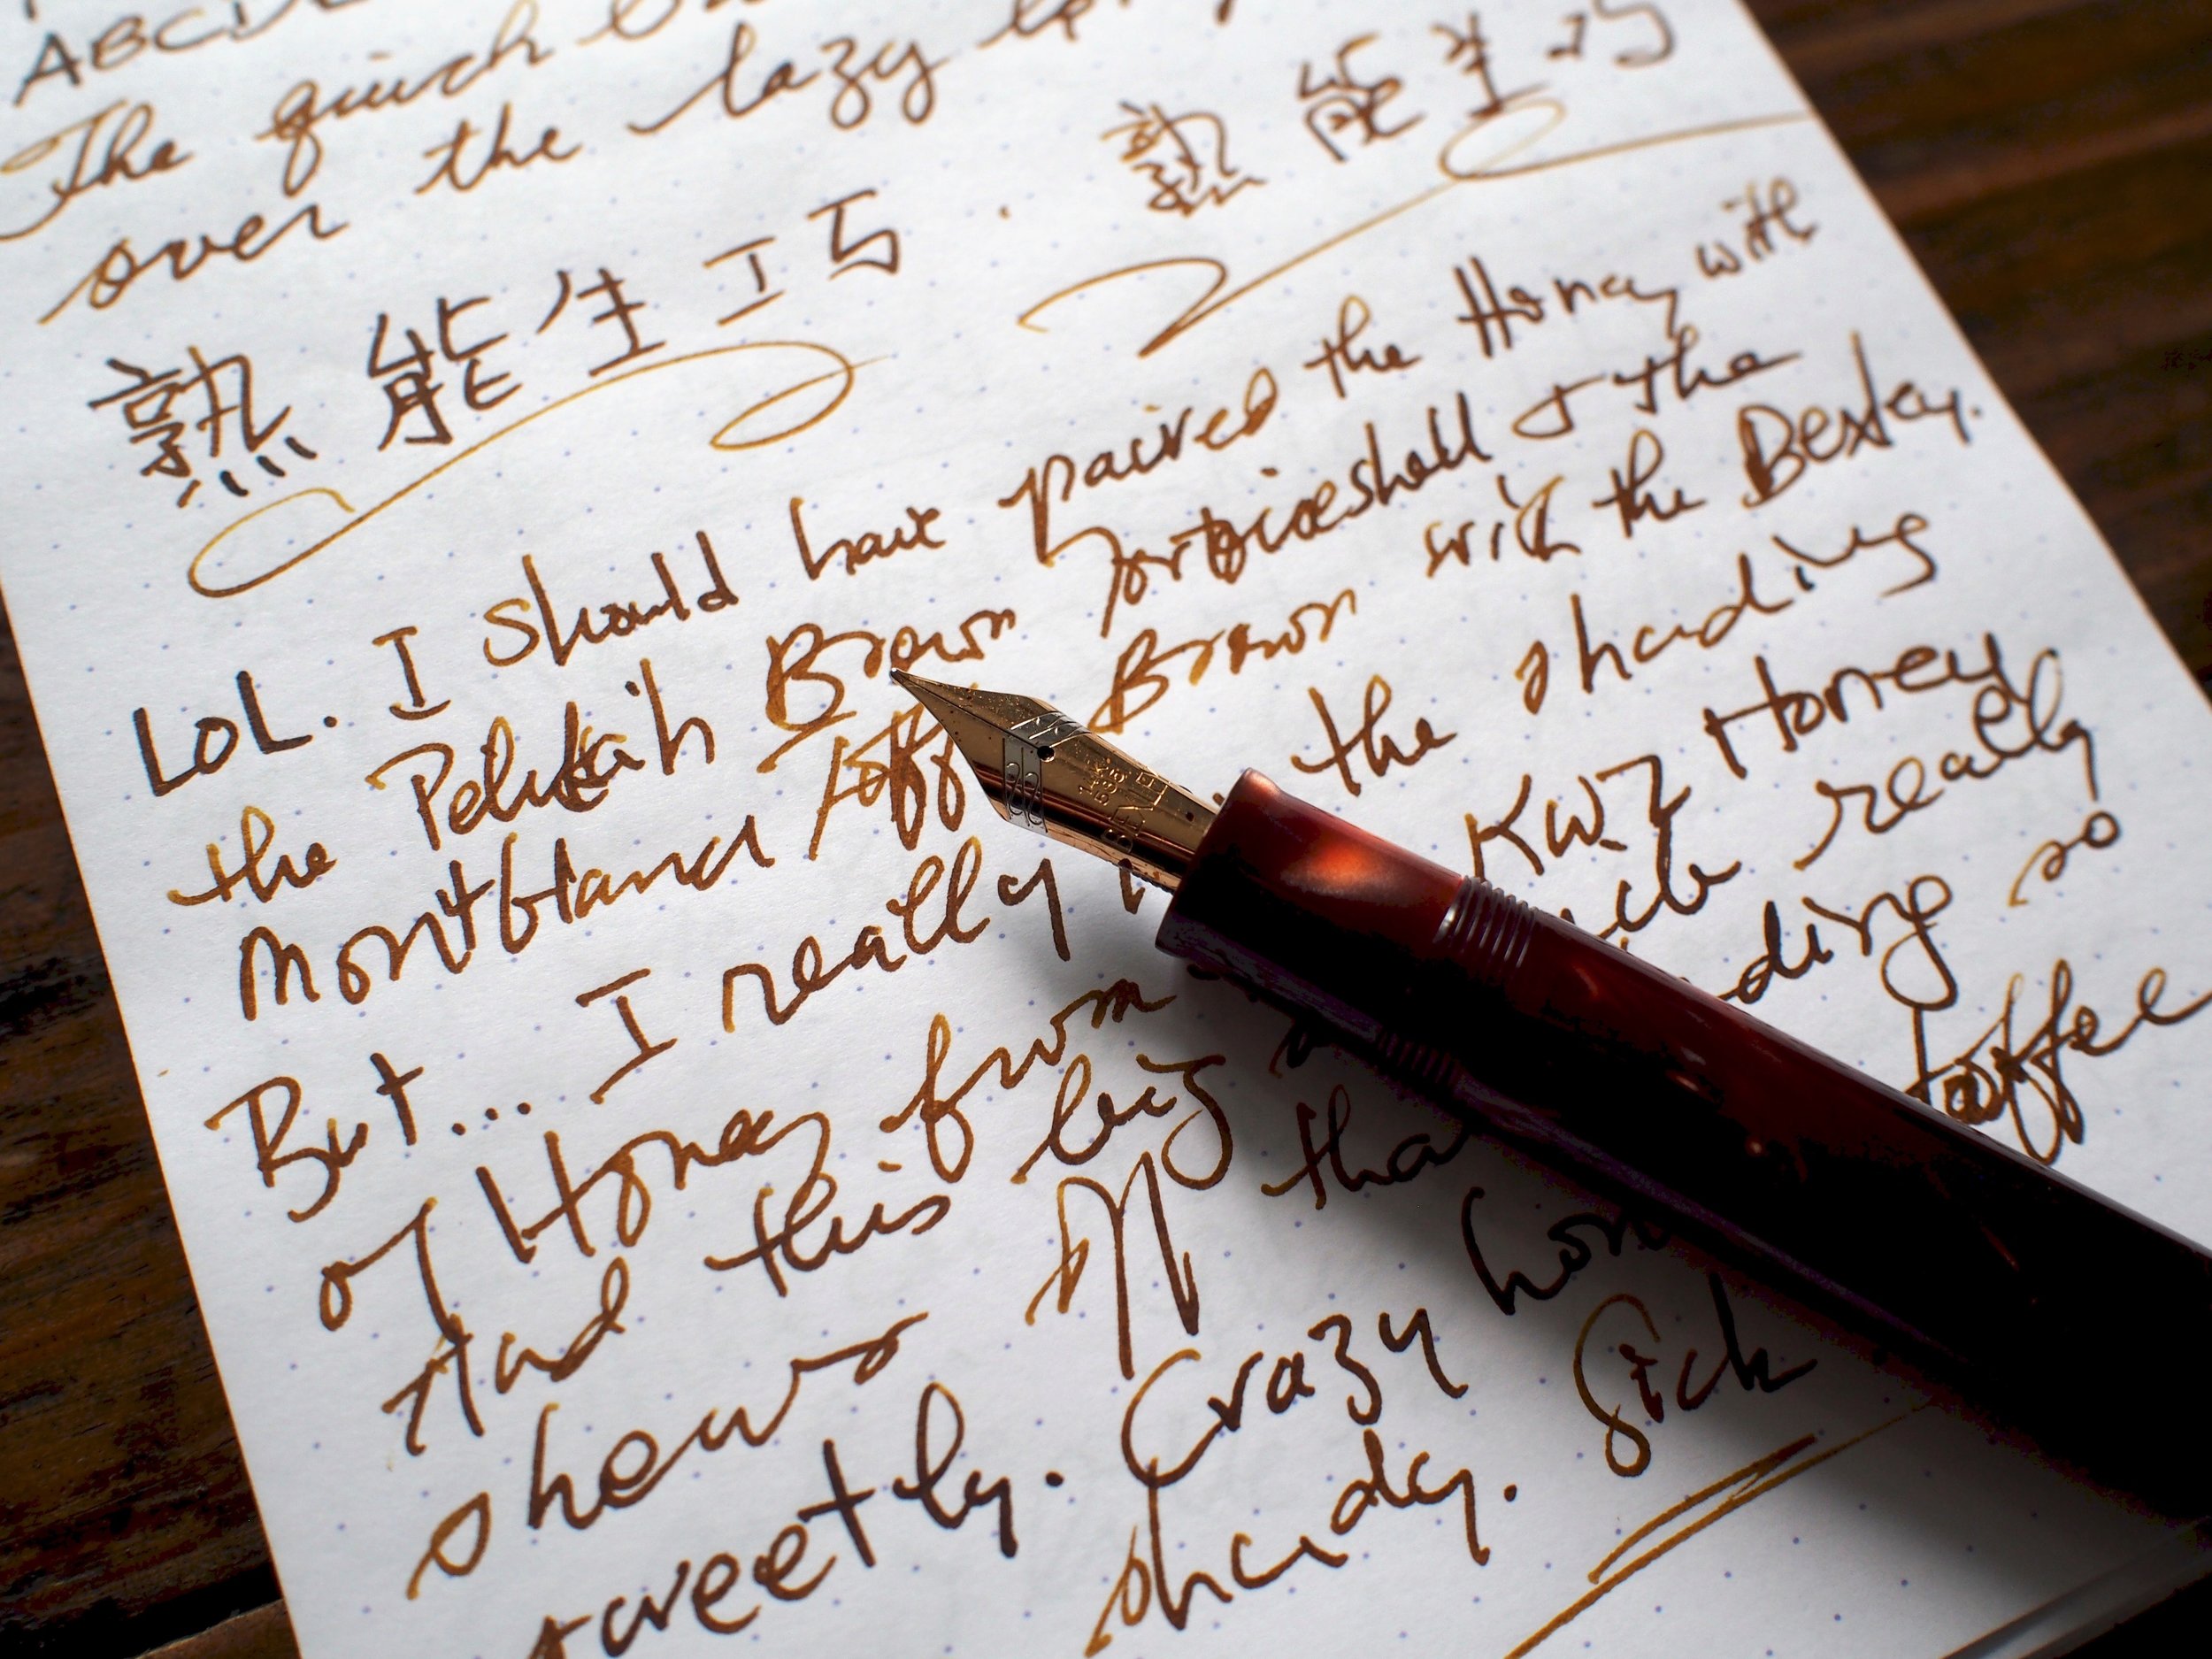 ABCD
The quick
over the lazy
熟能生巧. 熟能生巧
LOL. I should have paired the Honey with
the Pelikan Brown Tortoiseshell & the
Montblanc Toffee Brown with the Bexley.
But... I really the shading
of Honey from KWZ Honey
and this really
shows off ding so
sweetly. Crazy toffee
shady. Sick